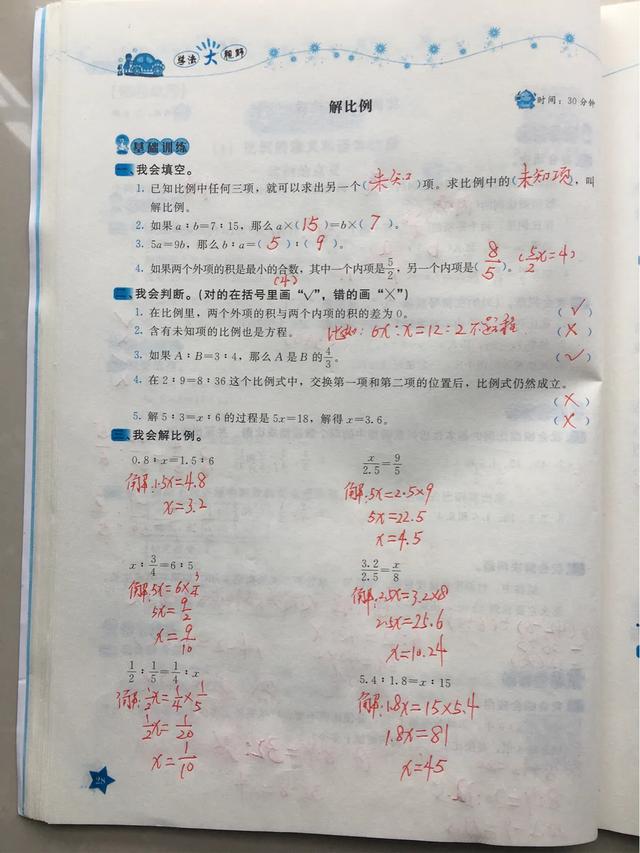 学法大视野
解比例
时间：30分钟
基础训练
一、我会填空。
1. 已知比例中任何三项，就可以求出另一个(未知)项。求比例中的(未知项)，叫
解比例。
2. 如果a∶b=7∶15，那么a×(15)=b×(7)。
3. 5a=9b，那么b∶a=(5)∶(9)。
4. 如果两个外项的积是最小的合数，其中一个内项是5/2，另一个内项是(8/5)。(5/2x=4)
(4)
二、我会判断。(对的在括号里画“√”，错的画“×”)
1. 在比例里，两个外项的积与两个内项的积的差为0。(√)
2. 含有未知项的比例也是方程。 比如：6x∶x=12∶2不是方程 (×)
3. 如果A∶B=3∶4，那么A是B的4/3。(√)
4. 在2∶9=8∶36这个比例式中，交换第一项和第二项的位置后，比例式仍然成立。
(×)
5. 解5∶3=x∶6的过程是5x=18，解得x=3.6。(×)
三、我会解比例。
0.8∶x=1.5∶6
解:1.5x=4.8
x=3.2
x/2.5=9/5
解:5x=2.5×9
5x=22.5
x=4.5
x∶3/4=6∶5
解:5x=6×3/4
5x=9/2
x=9/10
3.2/2.5=x/8
解:2.5x=3.2×8
2.5x=25.6
x=10.24
1/2∶1/5=1/4∶x
解:1/2x=1/4×1/5
1/2x=1/20
x=1/10
5.4∶1.8=x∶15
解:1.8x=15×5.4
1.8x=81
x=45
28